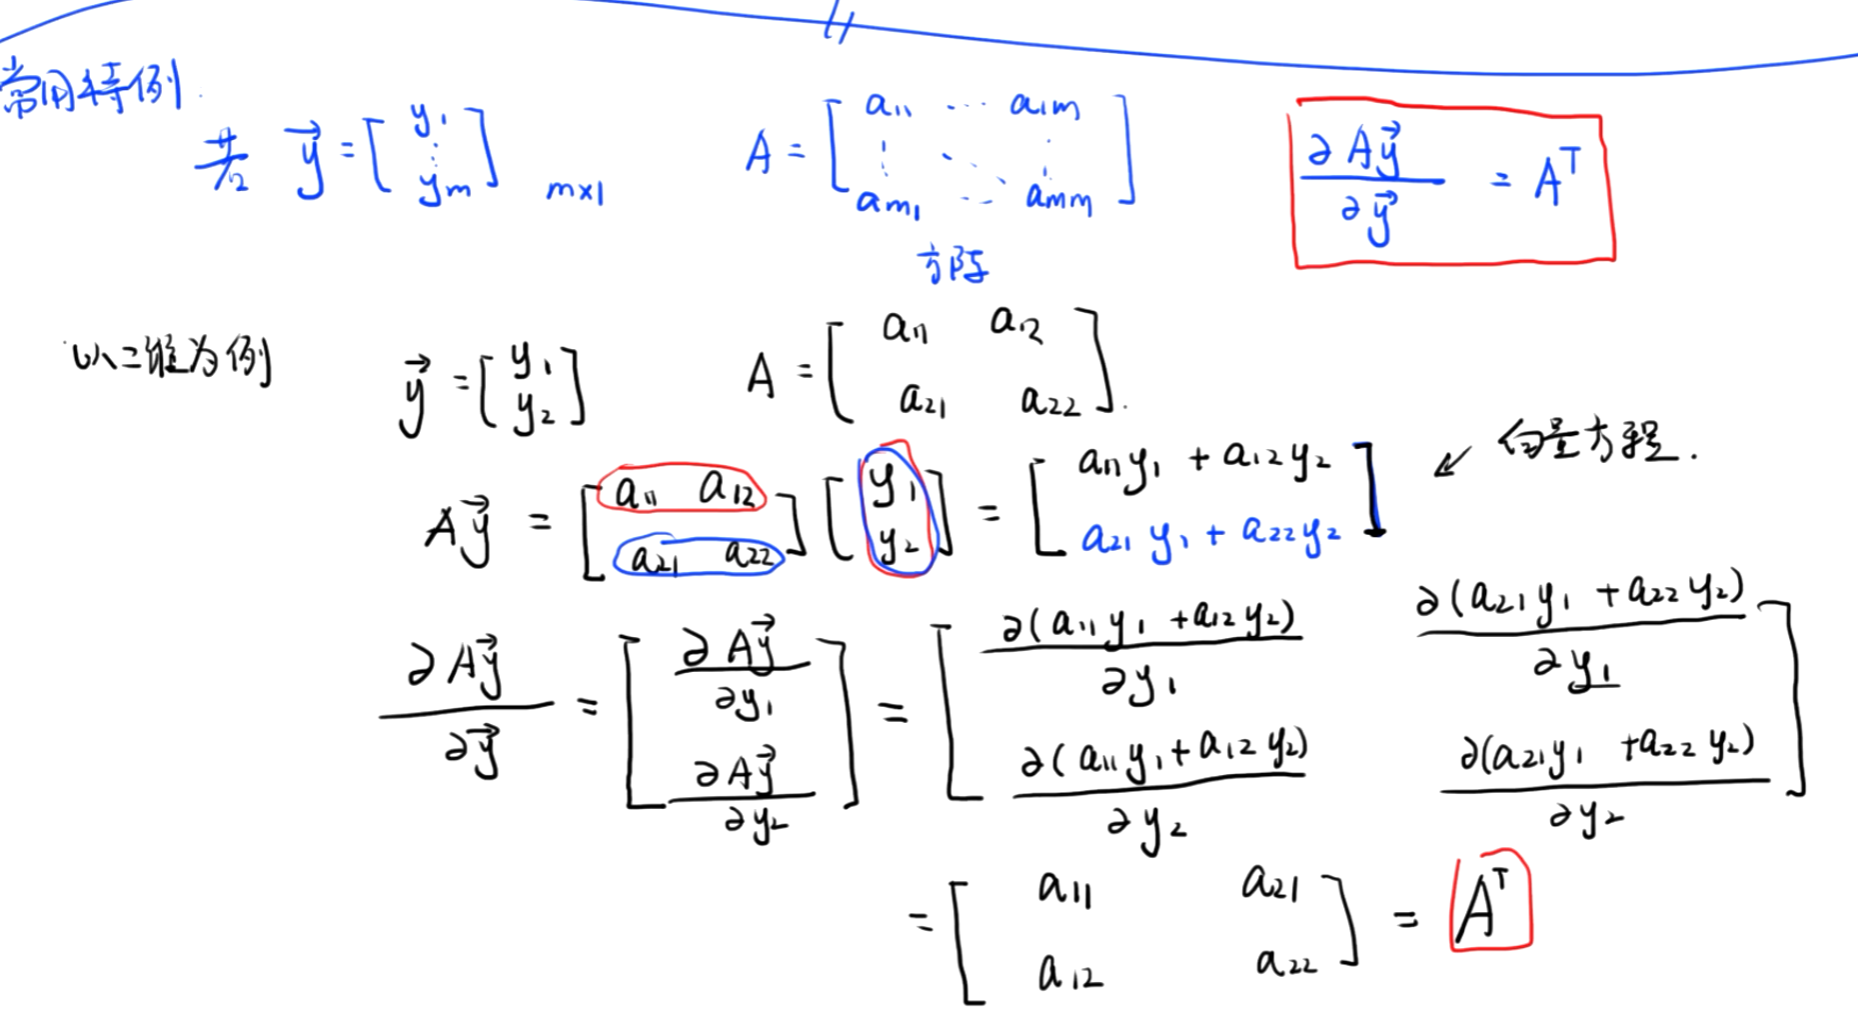 常用特例.
若 y⃗ = [y₁ ⋮ yₘ] m×1 A = [a₁₁ ⋯ a₁ₘ ⋮ ⋱ ⋮ aₘ₁ ⋯ aₘₘ] ∂Ay⃗/∂y⃗ = Aᵀ
方阵
以二维为例 y⃗ = [y₁ y₂] A = [a₁₁ a₁₂ a₂₁ a₂₂].
Ay⃗ = [a₁₁ a₁₂ a₂₁ a₂₂] [y₁ y₂] = [a₁₁y₁ + a₁₂y₂ a₂₁y₁ + a₂₂y₂] ↙ 向量方程.
∂Ay⃗/∂y⃗ = [∂Ay⃗/∂y₁ ∂Ay⃗/∂y₂] = [∂(a₁₁y₁ + a₁₂y₂)/∂y₁ ∂(a₂₁y₁ + a₂₂y₂)/∂y₁ ∂(a₁₁y₁ + a₁₂y₂)/∂y₂ ∂(a₂₁y₁ + a₂₂y₂)/∂y₂]
= [a₁₁ a₂₁ a₁₂ a₂₂] = Aᵀ